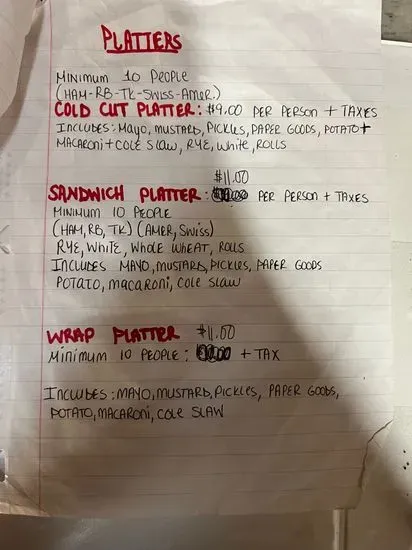 PLATTERS
MINIMUM 10 PEOPLE
(HAM-RB-TK-SWISS-AMER.)
COLD CUT PLATTER: $9.00 PER PERSON + TAXES
INCLUDES: MAYO, MUSTARD, PICKLES, PAPER GOODS, POTATO +
MACARONI + COLE SLAW, RYE, WHITE, ROLLS
$11.00
SANDWICH PLATTER: PER PERSON + TAXES
MINIMUM 10 PEOPLE
(HAM, RB, TK) (AMER, SWISS)
RYE, WHITE, WHOLE WHEAT, ROLLS
INCLUDES MAYO, MUSTARD, PICKLES, PAPER GOODS
POTATO, MACARONI, COLE SLAW
WRAP PLATTER $11.00
MINIMUM 10 PEOPLE: + TAX
INCLUDES: MAYO, MUSTARD, PICKLES, PAPER GOODS,
POTATO, MACARONI, COLE SLAW